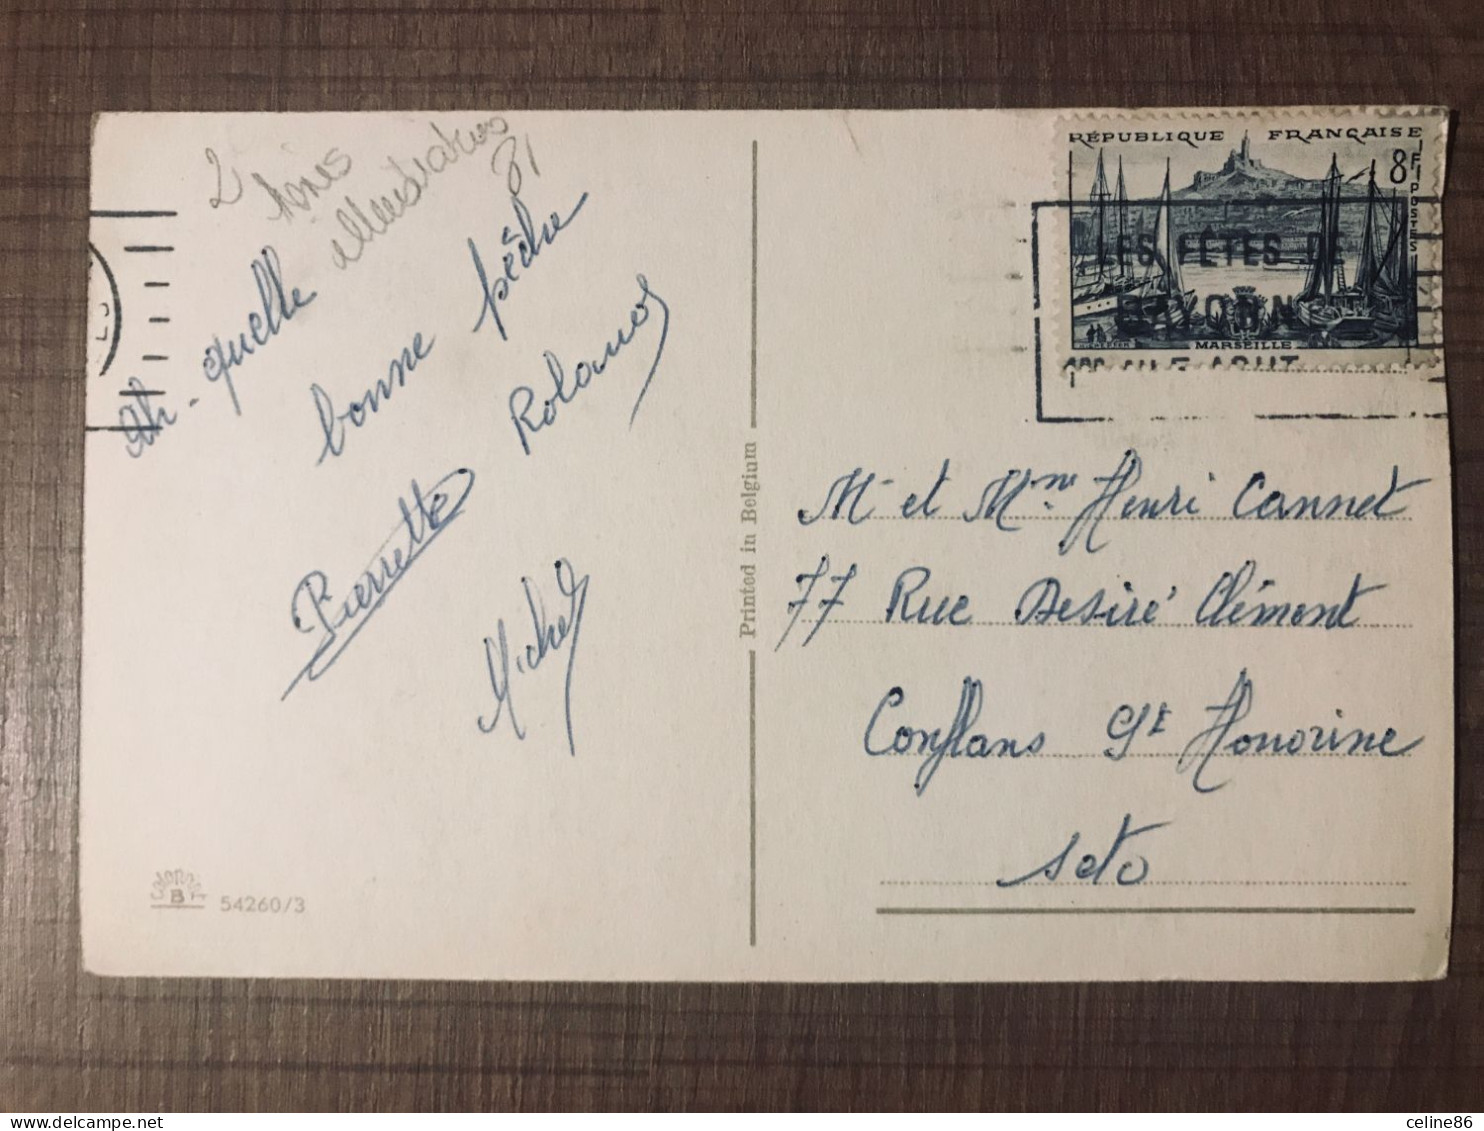 2
Anes
illustrateurs
31
Ah - quelle
bonne pêche
Rolano
Pierrette
Michel
54260/3
B
Printed in Belgium
RÉPUBLIQUE FRANÇAISE
8F
POSTES
MARSEILLE
LES FÊTES DE
BAYONNE
AOUT
M. et Mme Henri Cannet
77 Rue Desiré Clément
Conflans St Honorine
Seto
celine86